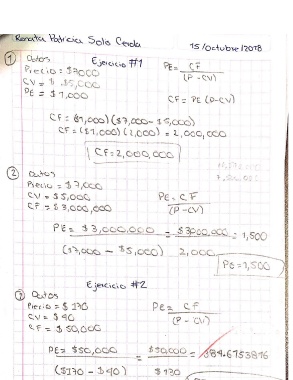 Renata Patricia Solo Cerda
15/octubre/2018
Ejercicio #1
① Datos
Precio = $7000
CV = $5,000
PE = $1,000
PE = CF
(P - CV)
CF = PE (P-CV)
CF = (1,000) ($7,000 - $5,000)
CF = ($1,000) (2,000) = 2,000,000
CF = 2,000,000
② Datos
Precio = $7,000
CV = $5,000
CF = $3,000,000
PE = C.F
(P - CV)
PE = $3,000,000 = $3000,000 = 1,500
($7,000 - $5,000) 2,000
PE = 1,500
Ejercicio #2
① Datos
Precio = $170
CV = $40
CF = $50,000
PE = CF
(P - CV)
PE = $50,000 = $50,000 = 384.6153846
($170 - $40) $130